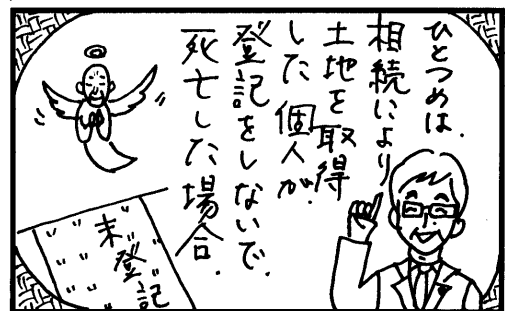 ひとつめは、
相続により
土地を取得
した個人が、
登記をしないで、
死亡した場合。
未登記